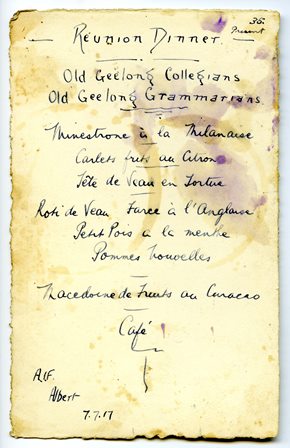 35.
Present
Reunion Dinner.
Old Geelong Collegians
Old Geelong Grammarians.
Minestrone à la Milanaise
Carlets frits au Citron
Tête de Veau en Tortue
Roti de Veau Farce à l'Anglaise
Petit Pois a la menthe
Pommes Nouvelles
Macedoine de Fruits au Curacao
Café
A.I.F.
Albert
7.7.17